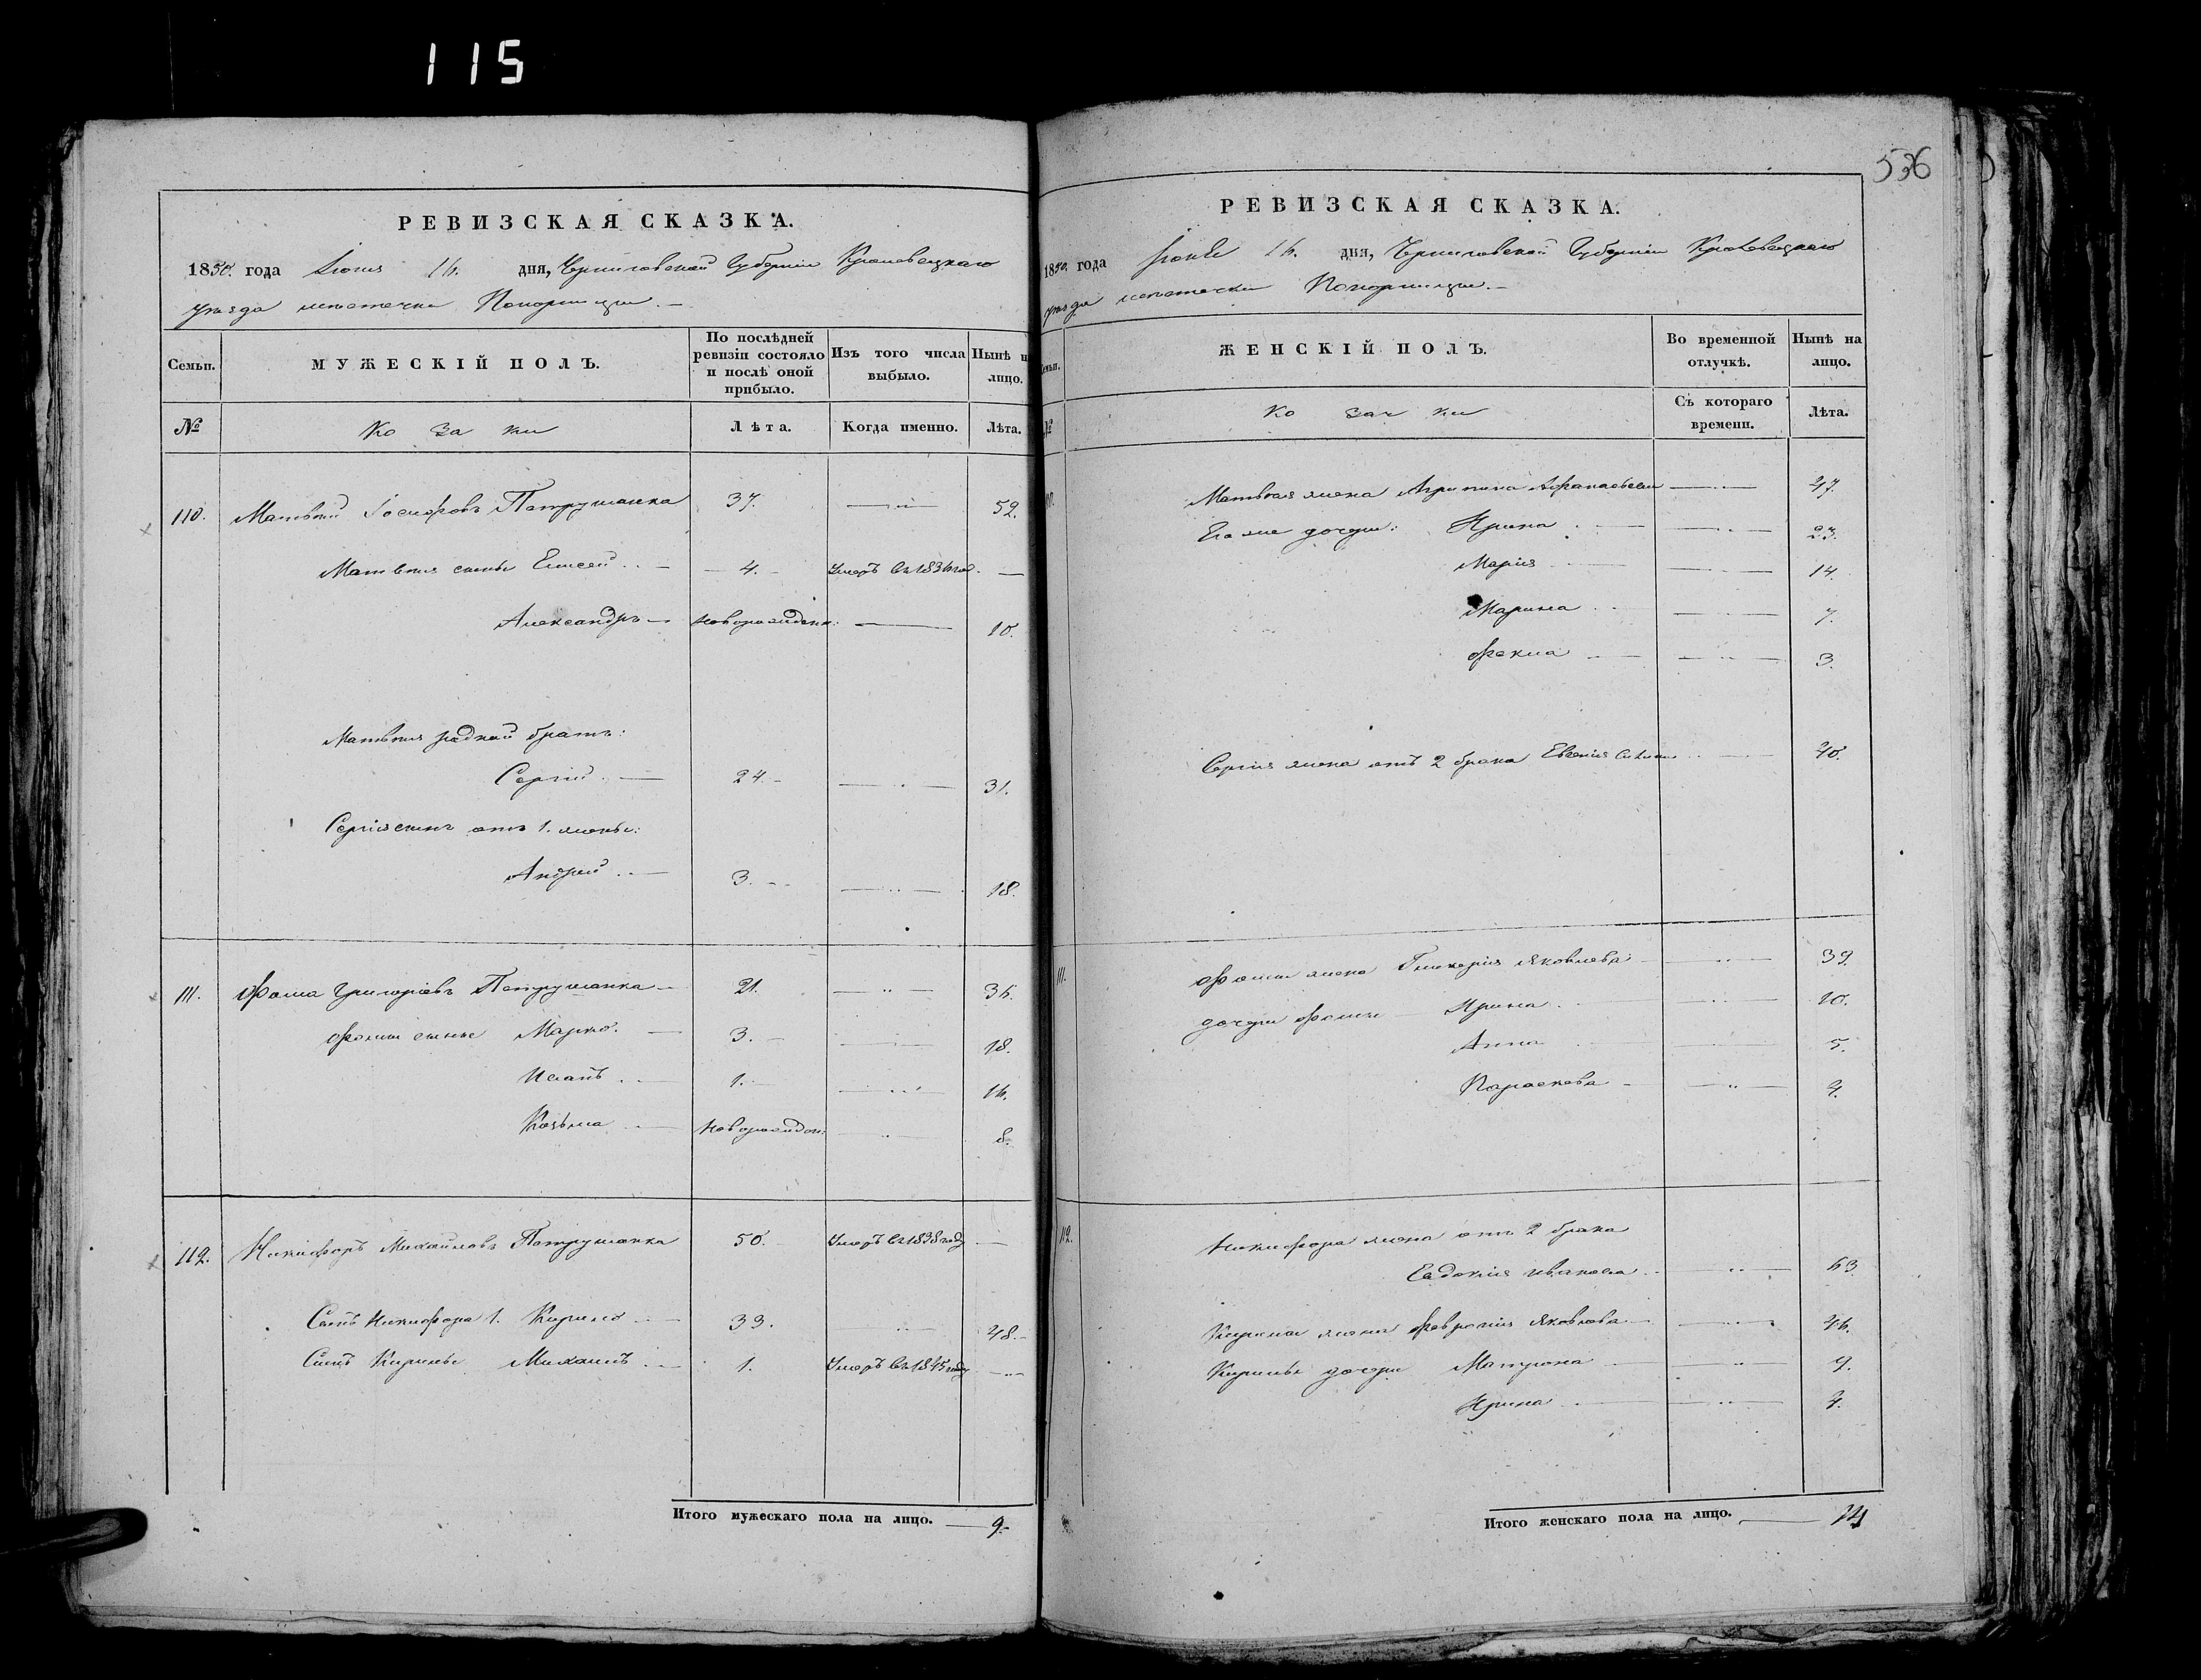 115
536
РЕВИЗСКАЯ СКАЗКА.
1850. года Iюня 16. дня, Черниговской Губернiи Кролевецкаго
уѣзда мѣстечка Понорницы. —
Семьи. МУЖЕСКІЙ ПОЛЪ. По послѣдней ревизіи состояло и послѣ оной прибыло. Изъ того числа выбыло. Нынѣ на лицо.
№ Ко за ки Лѣта. Когда именно. Лѣта.
110. Матвѣй Iосифовъ Петрушанка 37. 52.
Матвѣя сыны Елисей 4. Умеръ въ 1836 год.
Александръ новорожден: 10.
Матвѣя родной братъ:
Сергiй 24. 31.
Сергiя сынъ отъ 1. жены:
Андрей 3. 18.
111. Фома Григорiевъ Петрушанка 21. 36.
Фомы сыны Марко. 3. 18.
Исаiй 1. 16.
Козьма новорожден: 8.
112. Никифоръ Михайловъ Петрушанка 50. Умеръ въ 1838 году
Сынъ Никифора 1. Кирило 33. 48.
Сынъ Кирилы Михаилъ 1. Умеръ въ 1845 году
Итого мужескаго пола на лицо. 9.
РЕВИЗСКАЯ СКАЗКА.
1850. года Iюня 16. дня, Черниговской Губернiи Кролевецкаго
уѣзда мѣстечка Понорницы. —
Семьи. ЖЕНСКІЙ ПОЛЪ. Во временной отлучкѣ. Нынѣ на лицо.
№ Ко зач ки Съ котораго времени. Лѣта.
110. Матвѣя жена Агрипина Афанасьева 47.
Его же дочери: Ирина 23.
Марiя 14.
Марина 7.
Фекла 3.
Сергiя жена отъ 2 брака Евгенiя 40.
111. Фомы жена Гликерiя Яковлева 39.
дочери Фомы Ирина 10.
Анна 5.
Параскева 4.
112. Никифора жена отъ 2 брака
Евдокiя Иванова 63.
Кирилы жена Феврония Яковлева 46.
Кирилы дочери Матрона 9.
Ирина 4.
Итого женскаго пола на лицо. 14